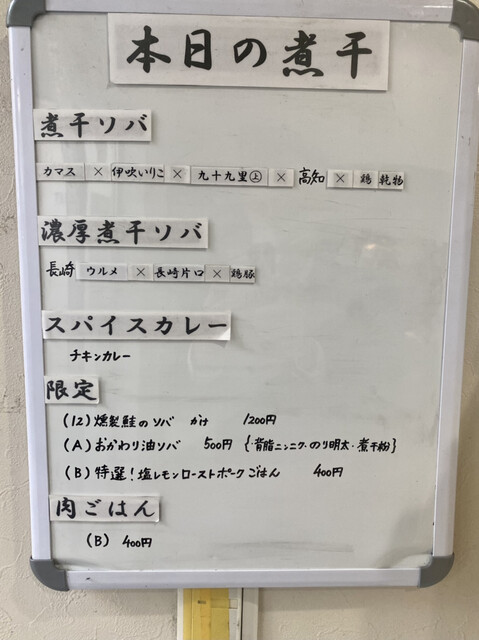 本日の煮干
煮干ソバ
カマス × 伊吹いりこ × 九十九里㊤ × 高知 × 鶏 乾物
濃厚煮干ソバ
長崎 ウルメ × 長崎片口 × 鶏豚
スパイスカレー
チキンカレー
限定
(12) 燻製鮭のソバ かけ 1200円
(A) おかわり油ソバ 500円 {・背脂ニンニク・のり明太・煮干粉}
(B) 特選!塩レモンローストポークごはん 400円
肉ごはん
(B) 400円